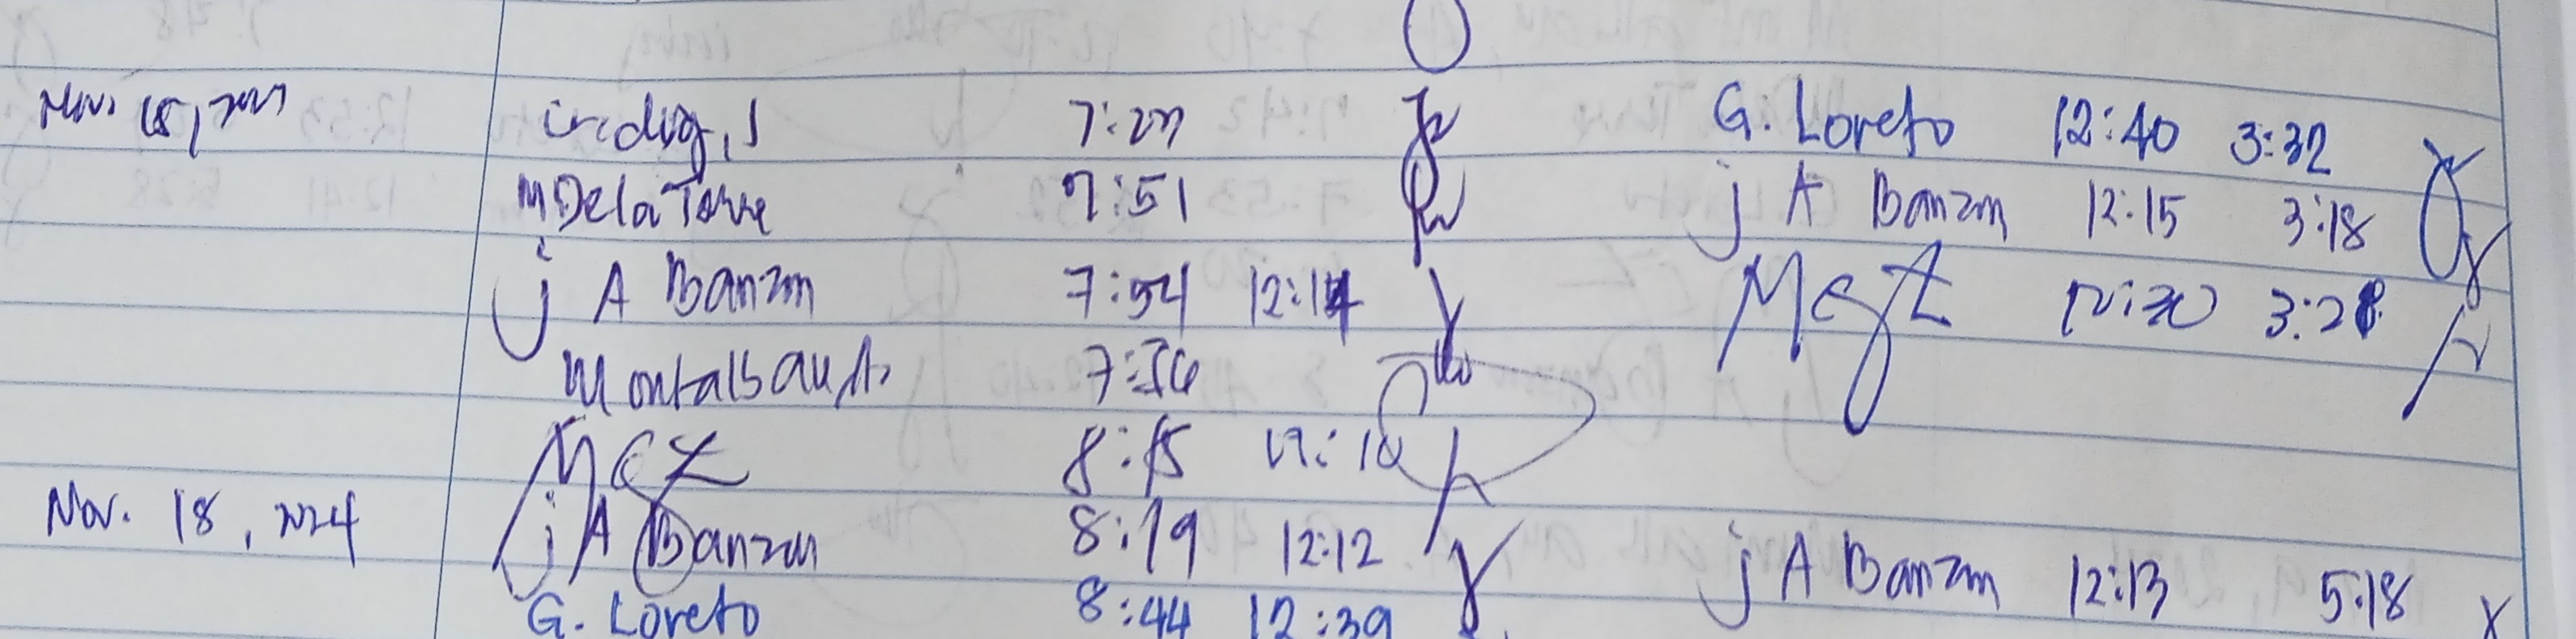 Nov. 15, 2024 7:27 G. Loreto 12:40 3:32
M Dela Torre 7:51 j A Banzon 12:15 3:18
j A Banzon 7:54 12:14 3:28
Montalban, A. 7:56
8:15 12:10
Nov. 18, 2024 j A Banzon 8:19 12:12 j A Banzon 12:13 5:18
G. Loreto 8:44 12:39